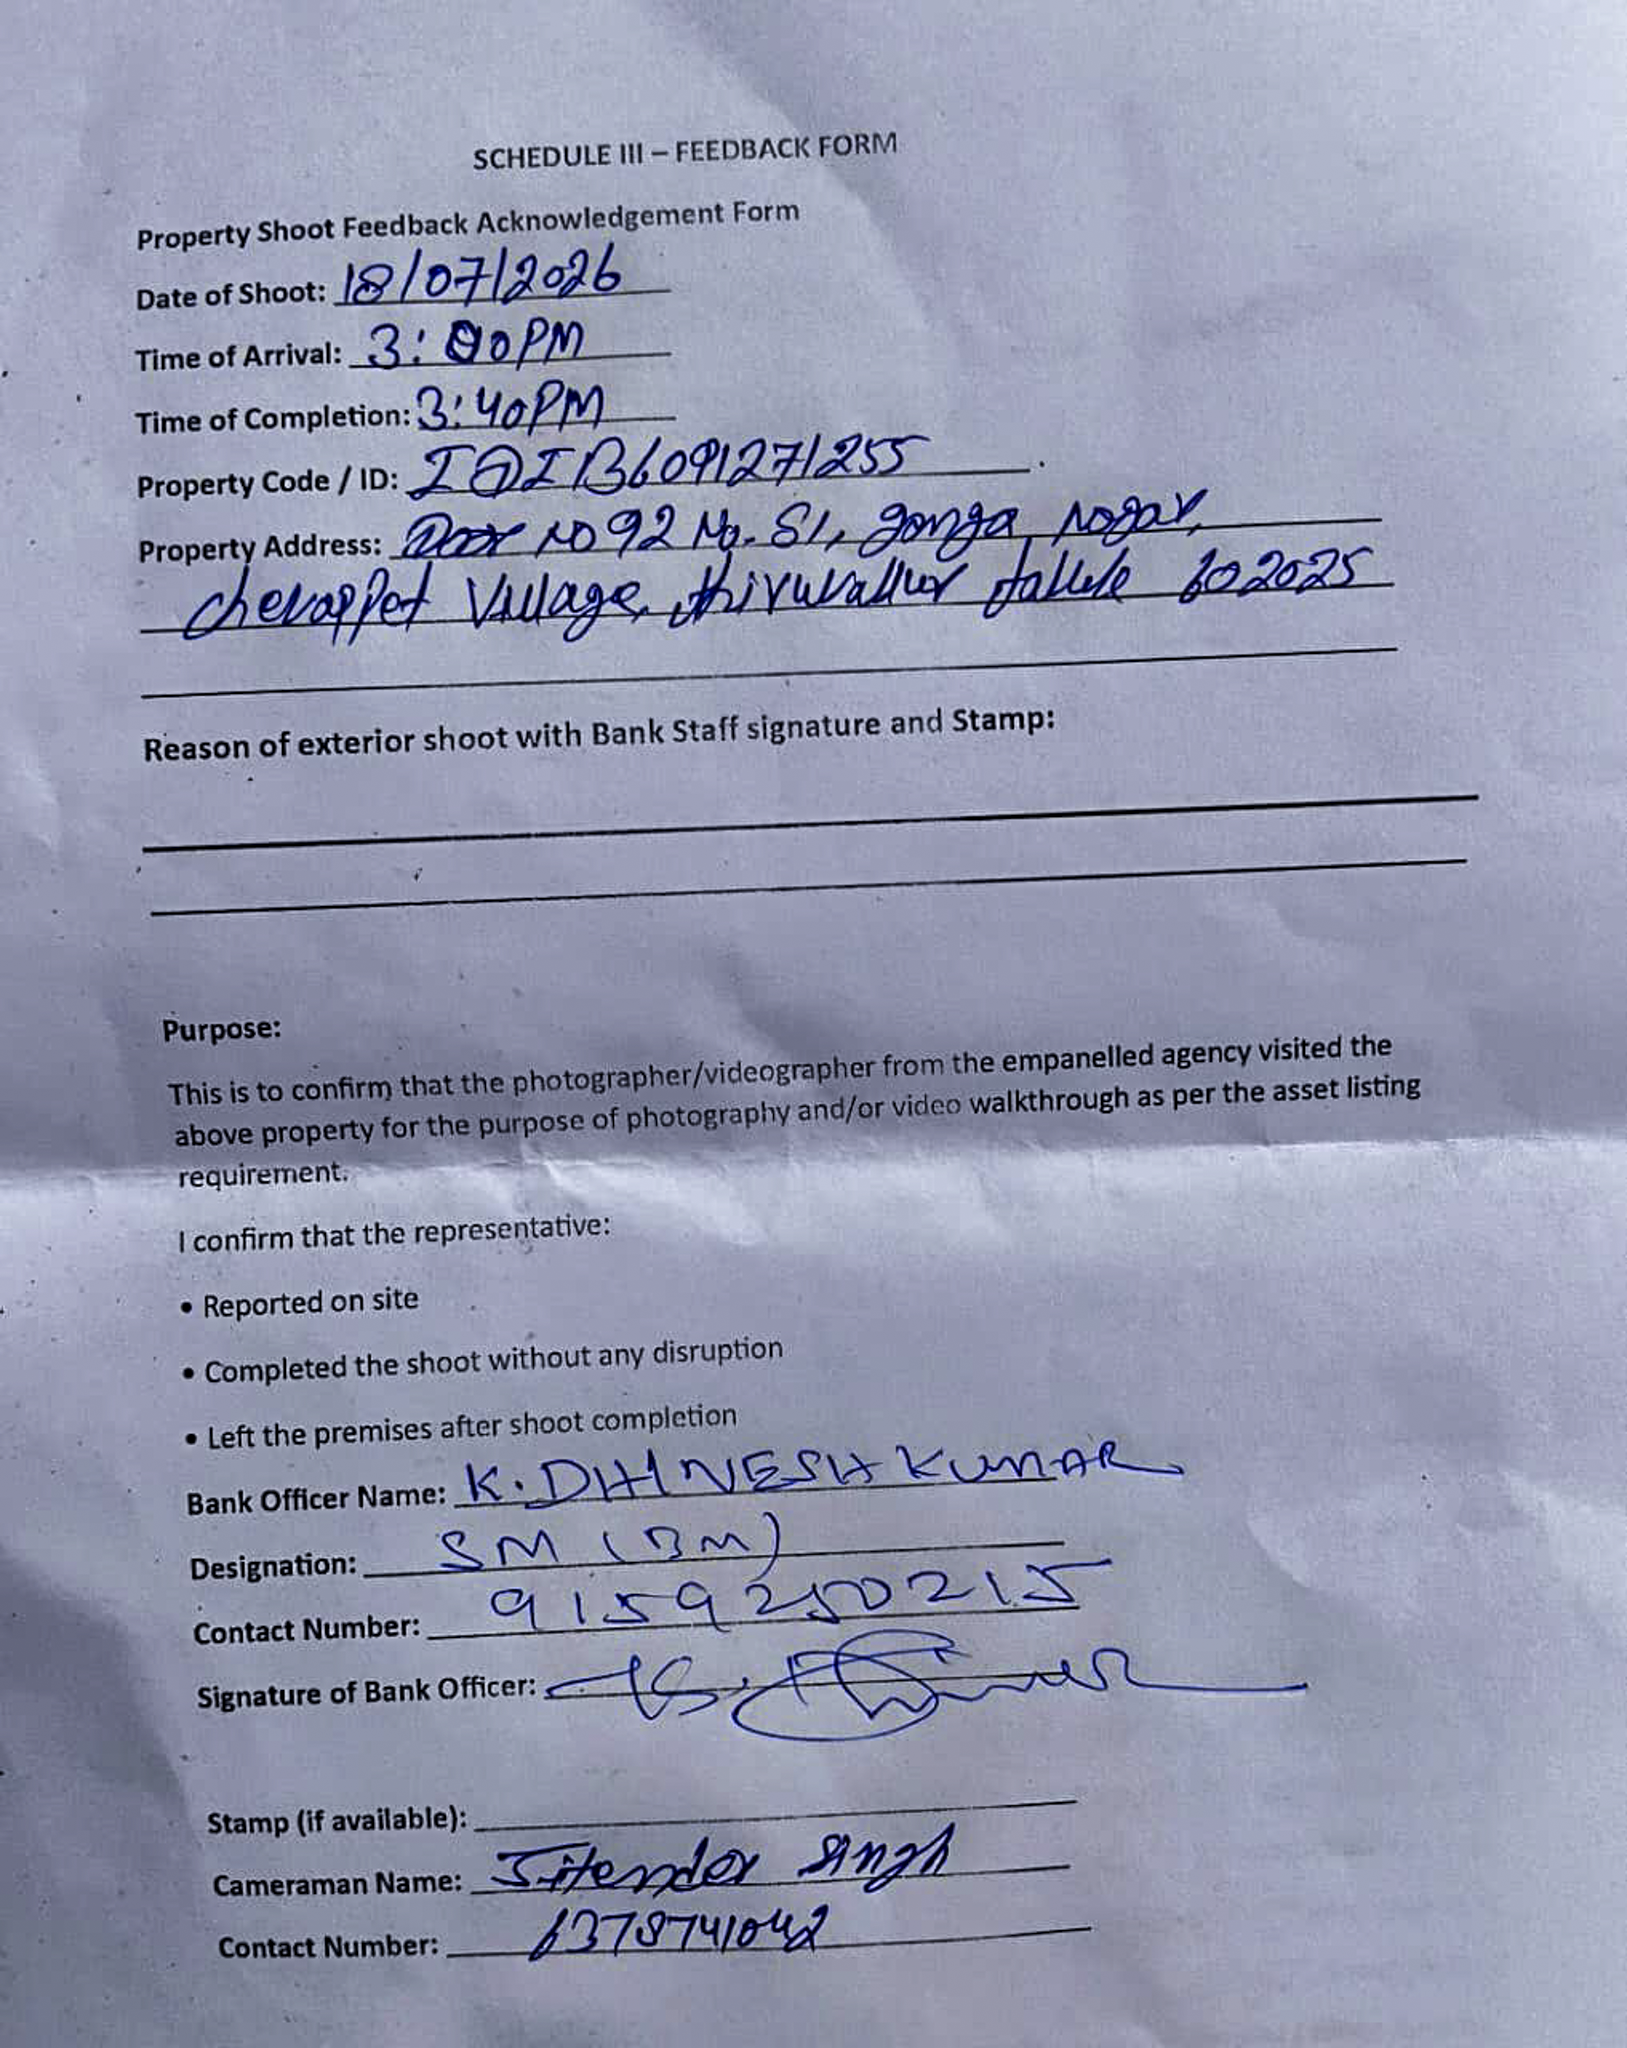 SCHEDULE III – FEEDBACK FORM
Property Shoot Feedback Acknowledgement Form
Date of Shoot: 18/07/2026
Time of Arrival: 3:00PM
Time of Completion: 3:40PM
Property Code / ID: IOIB6091271255
Property Address: Door NO 92 No. 51, ganga Nagar,
chevappet Village, thiruvallur talluk 602025
Reason of exterior shoot with Bank Staff signature and Stamp:
Purpose:
This is to confirm that the photographer/videographer from the empanelled agency visited the
above property for the purpose of photography and/or video walkthrough as per the asset listing
requirement.
I confirm that the representative:
• Reported on site
• Completed the shoot without any disruption
• Left the premises after shoot completion
Bank Officer Name: K. DHINESH KUMAR
Designation: SM (BM)
Contact Number: 9159250215
Signature of Bank Officer:
Stamp (if available):
Cameraman Name: Jitender Singh
Contact Number: 6378741042